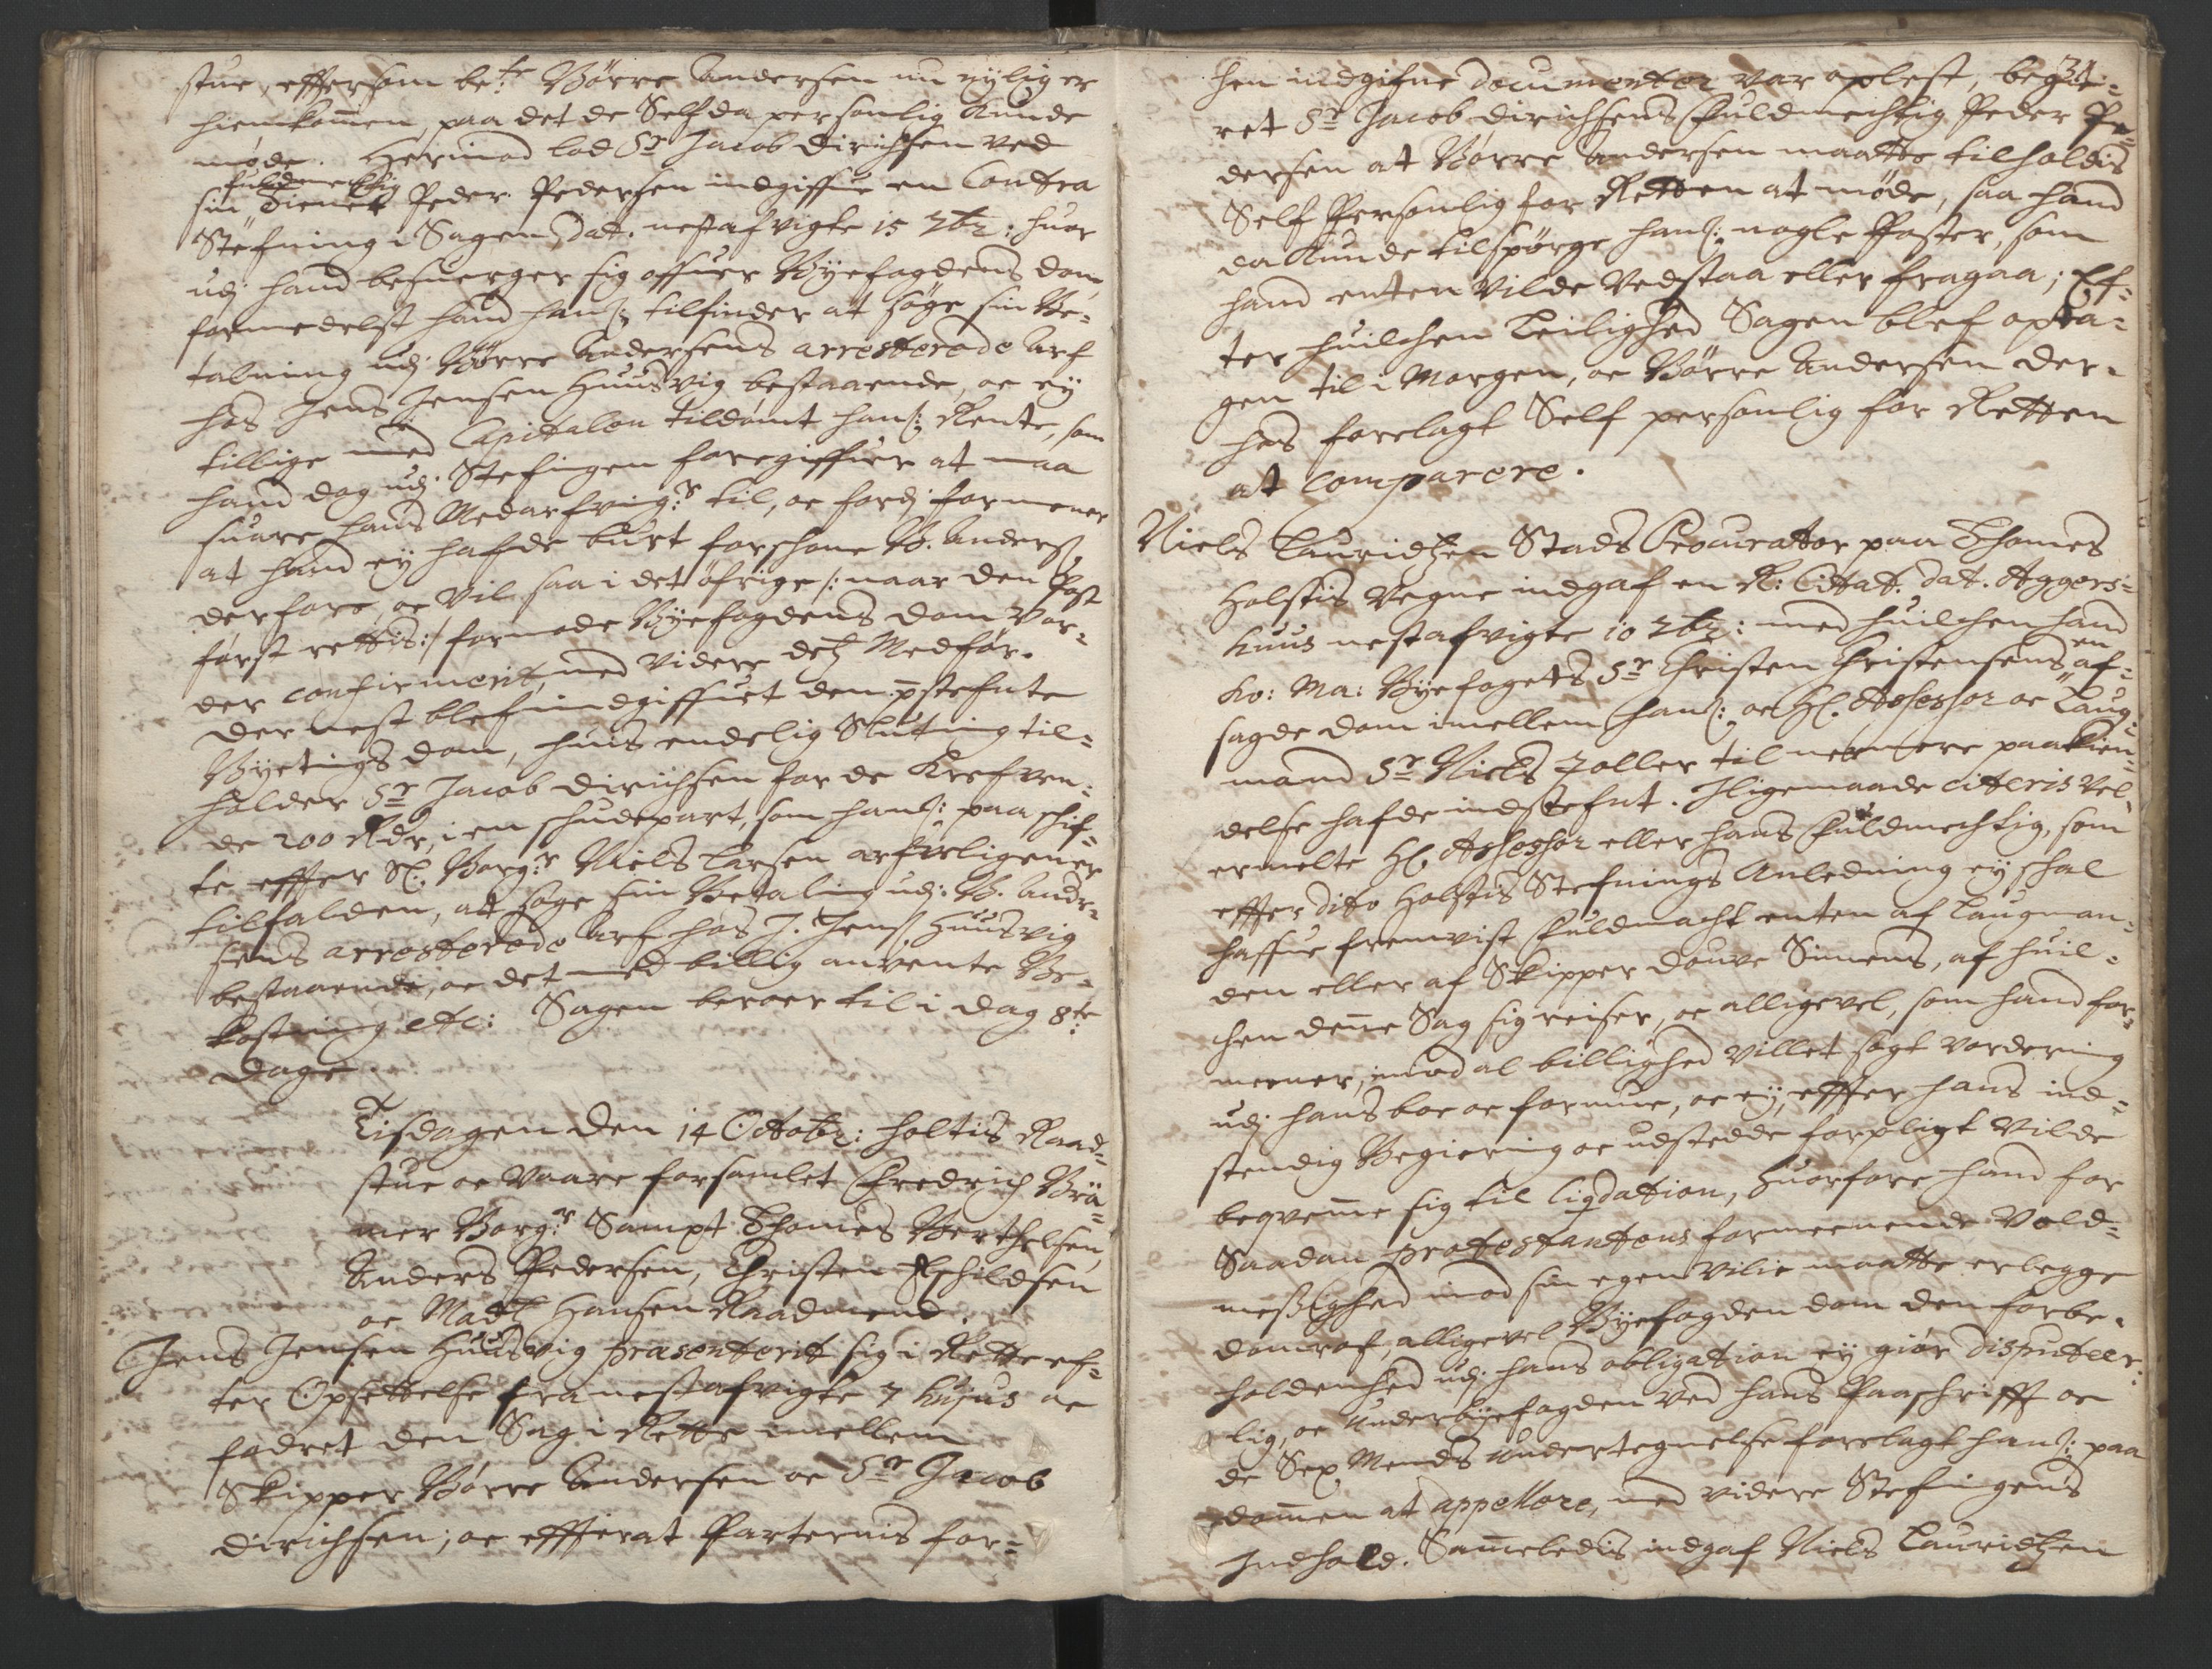 stue, effersom be:te Börre Andersen nu nÿlig er
hiemkom̃en, paa det de Self da personlig kunde
møde. Hermod lod Sr Jacob Dirichsen ved
fuldmechtig
sin Tiener Peder Pedersen indgiffue en Contra
Stefning i Sagen, dat. nestafvigte 15 7br: huor
udj hand besuerger sig offuer Bÿefogdens dom,
formedelst hand ham: tilfinder at søge sin Be-
talning udj Börre Andersens arresterede Arf
hos Jens Jensen Huusvig bestaaende, oc eÿ
tillige med Capitalen tildömt ham: Rente, som
hand dog udj Stefningen foregiffuer at maa
suare hans Medarfving:r til, oc fordj formener
at hand eÿ hafde burt forschone B. Anderß.
derfore, oc vil saa i det öfrige /: naar den Post
först rettis :/ formode Bÿefogdens dom vor-
der confirmerit, med videre detz Medför.
Der nest blef indgiffuet den p̄stefnte
Bÿetings dom, huis endelig Slutning til-
holder Sr Jacob Dirichsen for de Kref ven-
de 200 Rdr, i en schudepart, som ham: paa schif-
te effter Sl. Borg:r Niels Larsen arfueligen er
tilfalden, at søge sin Betaling udj B. Ander-
sens arresterede Arf hos J. Jens. Huusvig
bestaaende, oc det med billig anvente Be-
kostning etc: Sagen beroer til i dag 8te
dage.
Tisdagen den 14 Octobr: holtis Raad-
stue oc vaare forsamlet Fredrich Brö-
mer Borg:r Sampt Thomes Berthelsen,
Anders Pedersen, Christen Eschildsen
oc Madtz Hansen Raadmend.
Jens Jensen Huusvig præsenterit sig i Rette ef-
ter Opsettelse fra nestafvigte 7 hujus oc
fodret den Sag i Rette imellem
Skipper Börre Andersen oc Sr Jacob
Dirichsen; oc effterat Parternis for-
34
hen indgifne documenter var oplest, begie-
ret Sr Jacob Dirichsens Fuldmechtig Peder Pe-
dersen at Börre Andersen maatte tilholdis
Self Personlig for Retten at møde, saa hand
da kunde tilspörge ham: nogle Poster, som
hand enten vilde vedstaa eller fragaa; Ef-
ter huilchen Leilighed Sagen blef opta-
gen til i Morgen, oc Börre Andersen der-
hos forelagt Self personlig for Retten
at comparere.
Niels Lauridtzen Stads Procurator paa Thomes
Holstis Vegne indgaf en R: Citat. dat. Aggers-
huus nestafvigte 10 7br: med huilchen hand
en
Ko: Ma: Bÿefogets Sr Christen Christensens af-
sagde dom imellem ham: oc Hl. Assessor oc Laug-
mand Sr Niels Toller til nermere paakien-
delse hafde indstefnt. Iligemaade citteris vel-
ermelte Hl. Assessor eller hans Fuldmechtig, som
effter dito Holstis Stefnings Anledning eÿ schal
haffue fremvist Fuldmacht enten af Laugman-
den eller af Skipper Douve Simens, af huil-
chen den̄e Sag sig reiser, oc alligevel, som hand for-
meener, imod al billighed villet søgt vordering
udj hans boe oc formue, oc eÿ effter hans ind-
stendig Begiering oc udstedde forpligt vilde
beqvem̃e sig til liqdation, Huorfore hand for
Saadan protestantens formeenende Vold-
meßighed imod sin egen Vilie maatte erlegge
domraf, alligevel Bÿefogden dom den forbe-
holdenhed udj hans obligation eÿ giör disputeer-
lig, oc Underbÿefogden ved hans Paaschrifft oc
de Sex Mends undertegnelse forelagt ham: paa
dom̃en at appellere, med videre Stefningens
Indhold. Sam̃eledis indgaf Niels Lauridtzen